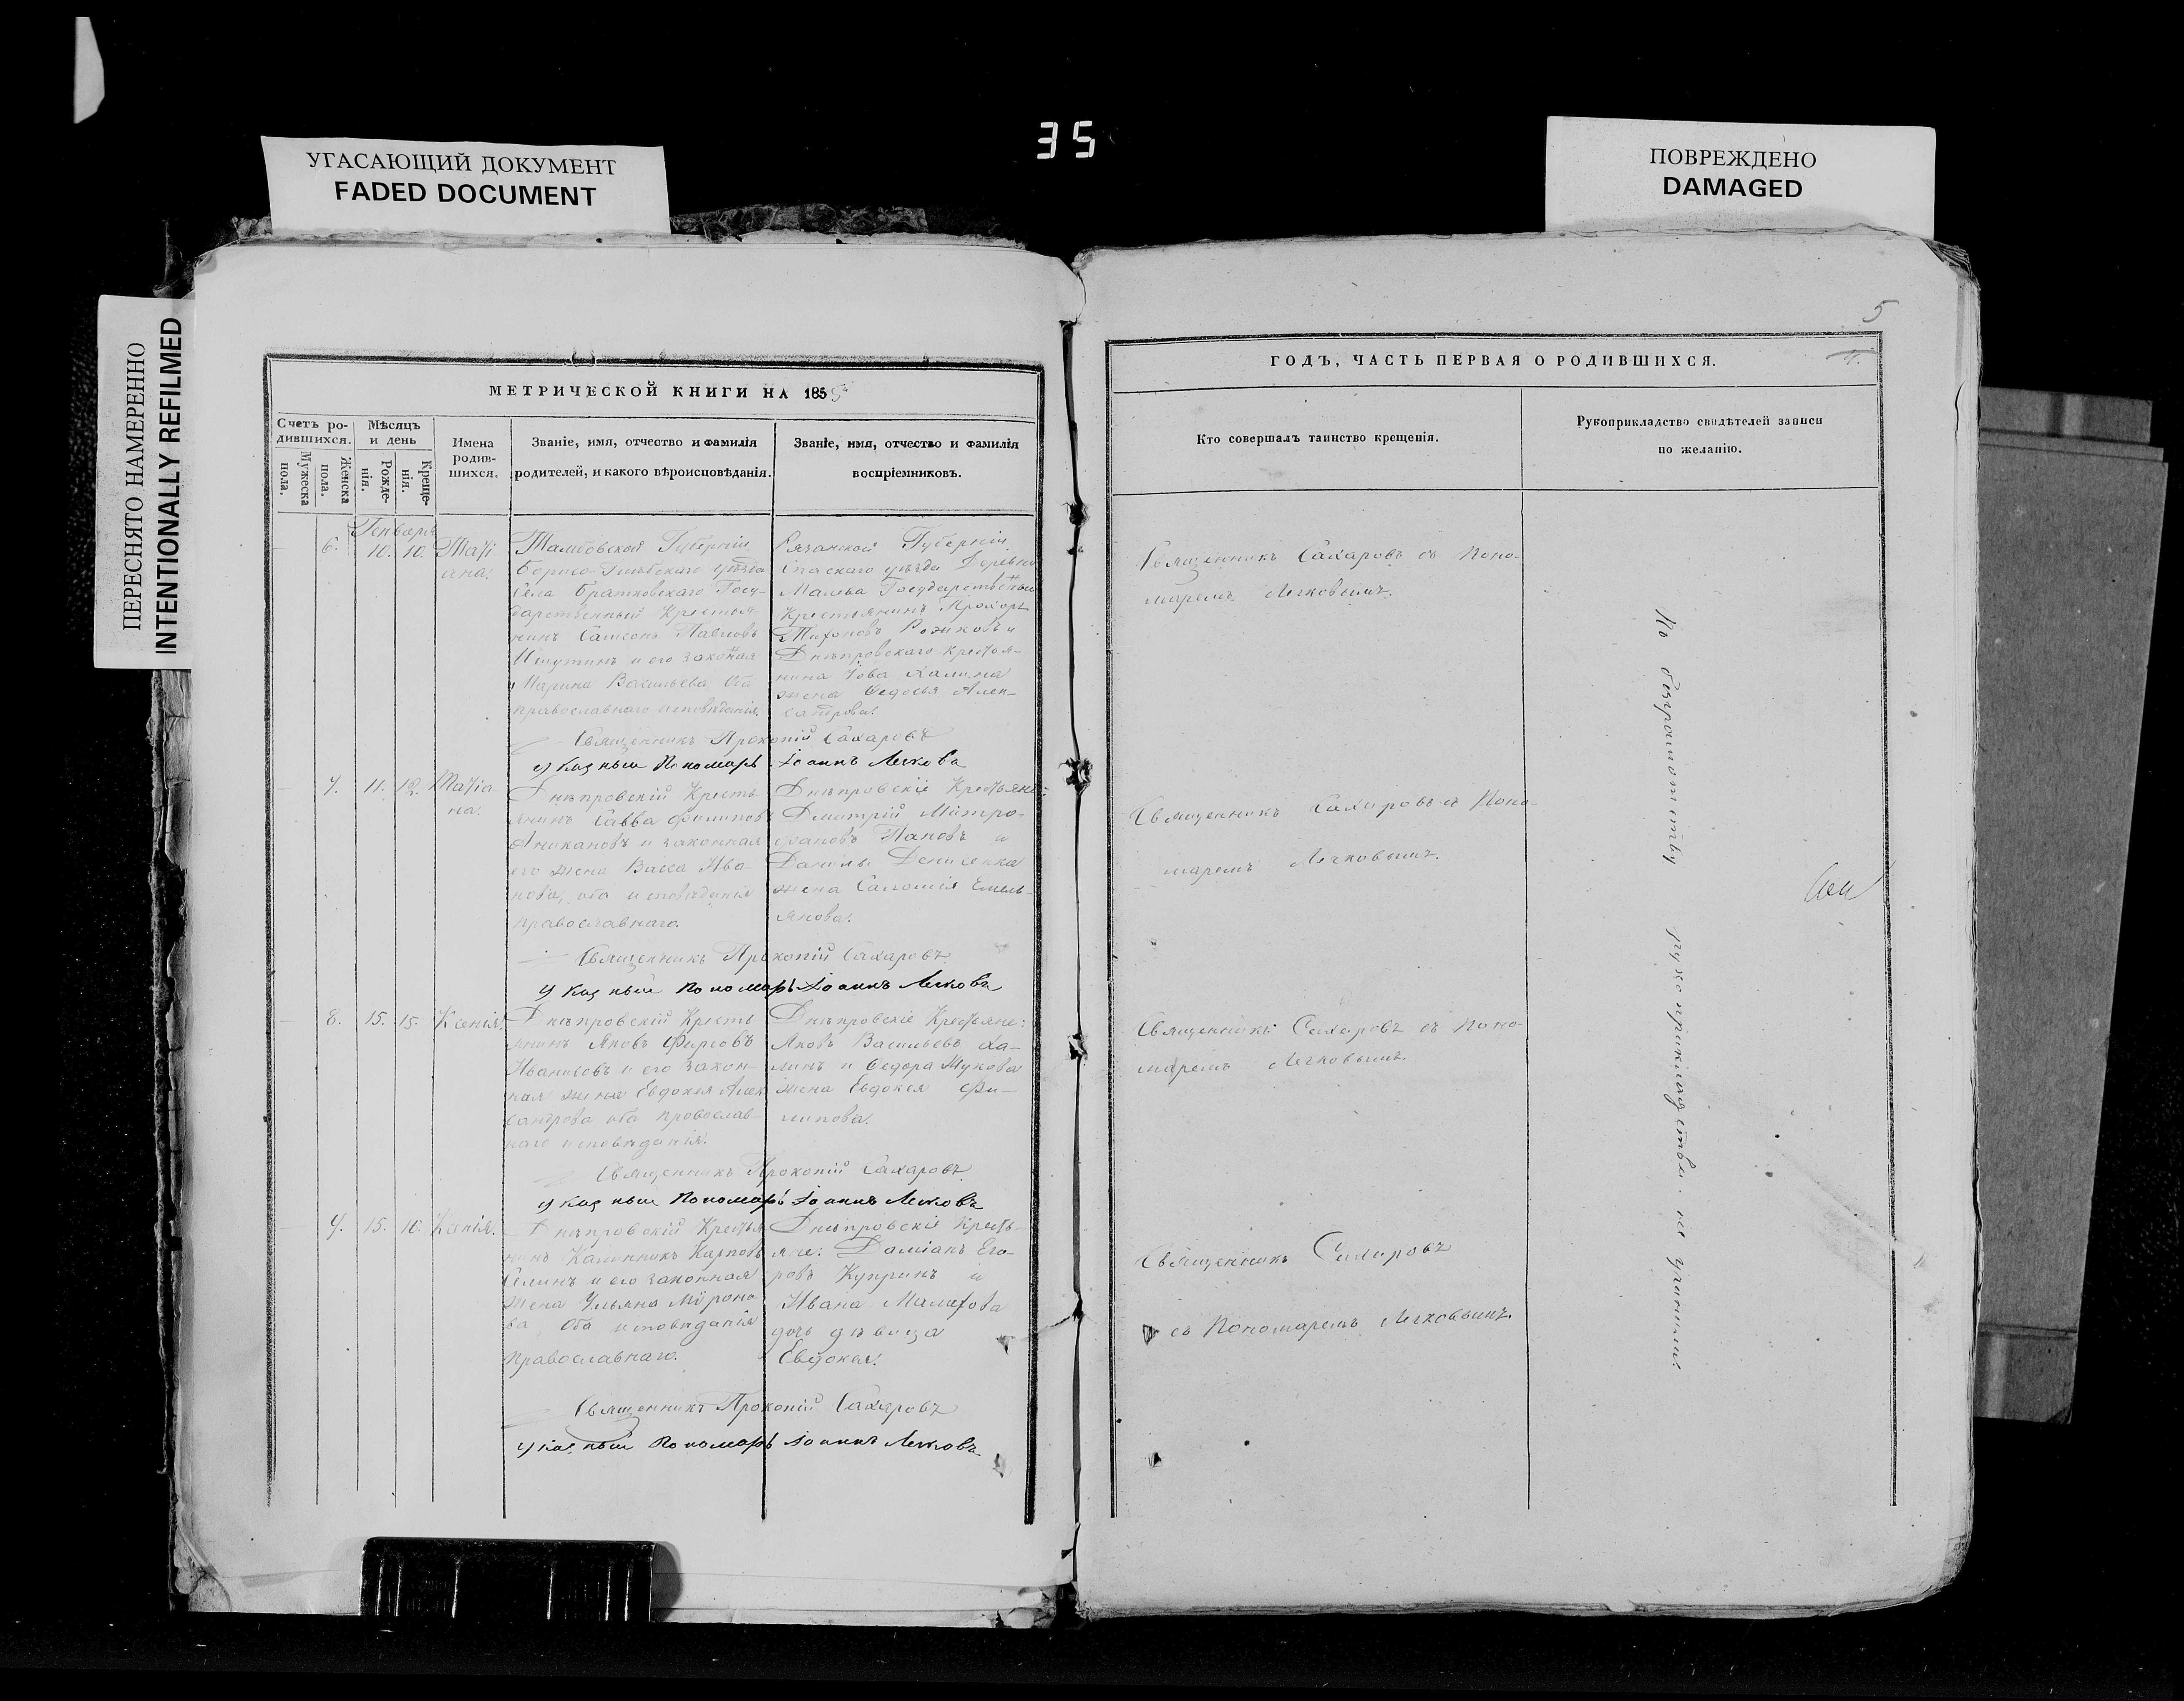 35
УГАСАЮЩИЙ ДОКУМЕНТ
FADED DOCUMENT
ПОВРЕЖДЕНО
DAMAGED
ПЕРЕСНЯТО НАМЕРЕННО
INTENTIONALLY REFILMED
МЕТРИЧЕСКОЙ КНИГИ НА 185
Счетъ ро-
дившихся.
Мужеска
пола.
Женска
пола.
Мѣсяцъ
и день
Рожде-
нія.
Креще-
нія.
Имена
родив-
шихся.
Званіе, имя, отчество и фамилія
родителей, и какого вѣроисповѣданія.
Званіе, имя, отчество и фамилія
воспріемниковъ.
Генваря
6. 10. 10. Тати
ана.
Тамбовской Губерніи
Борисо-Глѣбскаго уѣзда
Села Братковскаго Госу-
дарственный Крестья-
нинъ Самсонъ Павловъ
Ишутинъ и его законая
Марина Васильева Оба
православнаго исповѣданія.
Рязанской Губерніи
Спаскаго уѣзда Деревни
Государственый
Крестьянинъ Прохоръ
Тихоновъ и
Днѣпровскаго Крестья-
нина Іова Халина
жена Ѳедосья Алек-
сандрова.
Священникъ Прокопій Сахаровъ
Указный Пономарь Іоаннъ Легковъ
7. 11. 12. Татіа
на.
Днѣпровскій Кресть-
янинъ Савва Филиповъ
Аникановъ и законная
его жена Васса Ива-
нова, оба исповѣданія
православнаго.
Днѣпровскіе Крестьяне:
Дмитрій Митро-
фановъ Поповъ и
Данилы Денисенка
жена Саломія Емель-
янова.
Священникъ Прокопій Сахаровъ
Указный Пономарь Іоаннъ Легковъ
8. 15. 15. Ксенія.
Днѣпровскій Кресть-
янинъ Яковъ Фирсовъ
и его закон-
ная жена Евдокея Алек
сандрова оба православ-
наго исповѣданія.
Днѣпровскіе Крестьяне:
Яковъ Васильевъ Ха-
линъ и Ѳедора Жукова
жена Евдокея Фи-
липова.
Священникъ Прокопій Сахаровъ
Указный Пономарь Іоаннъ Легковъ
9. 15. 16. Ксенія.
Днѣпровскій Крестья
нинъ Калинникъ Карповъ
и его законная
жена Ульяна Міроно-
ва Оба исповѣданія
православнаго.
Днѣпровскіе Кресть-
яне: Даміанъ Его-
ровъ Купринъ и
Ивана Малахова
дочь дѣвица
Евдокея.
Священникъ Прокопій Сахаровъ
Указный Пономарь Іоаннъ Легковъ
5
ГОДЪ, ЧАСТЬ ПЕРВАЯ О РОДИВШИХСЯ.
4.
Кто совершалъ таинство крещенія.
Рукоприкладство свидѣтелей записи
по желанію.
Священникъ Сахаровъ съ Поно-
маремъ Легковымъ.
Священникъ Сахаровъ съ Поно-
маремъ Легковымъ.
Священникъ Сахаровъ съ Поно-
маремъ Легковымъ.
Священникъ Сахаровъ
съ Пономаремъ Легковымъ.
По безграмотству рукоприкладства не учинили.